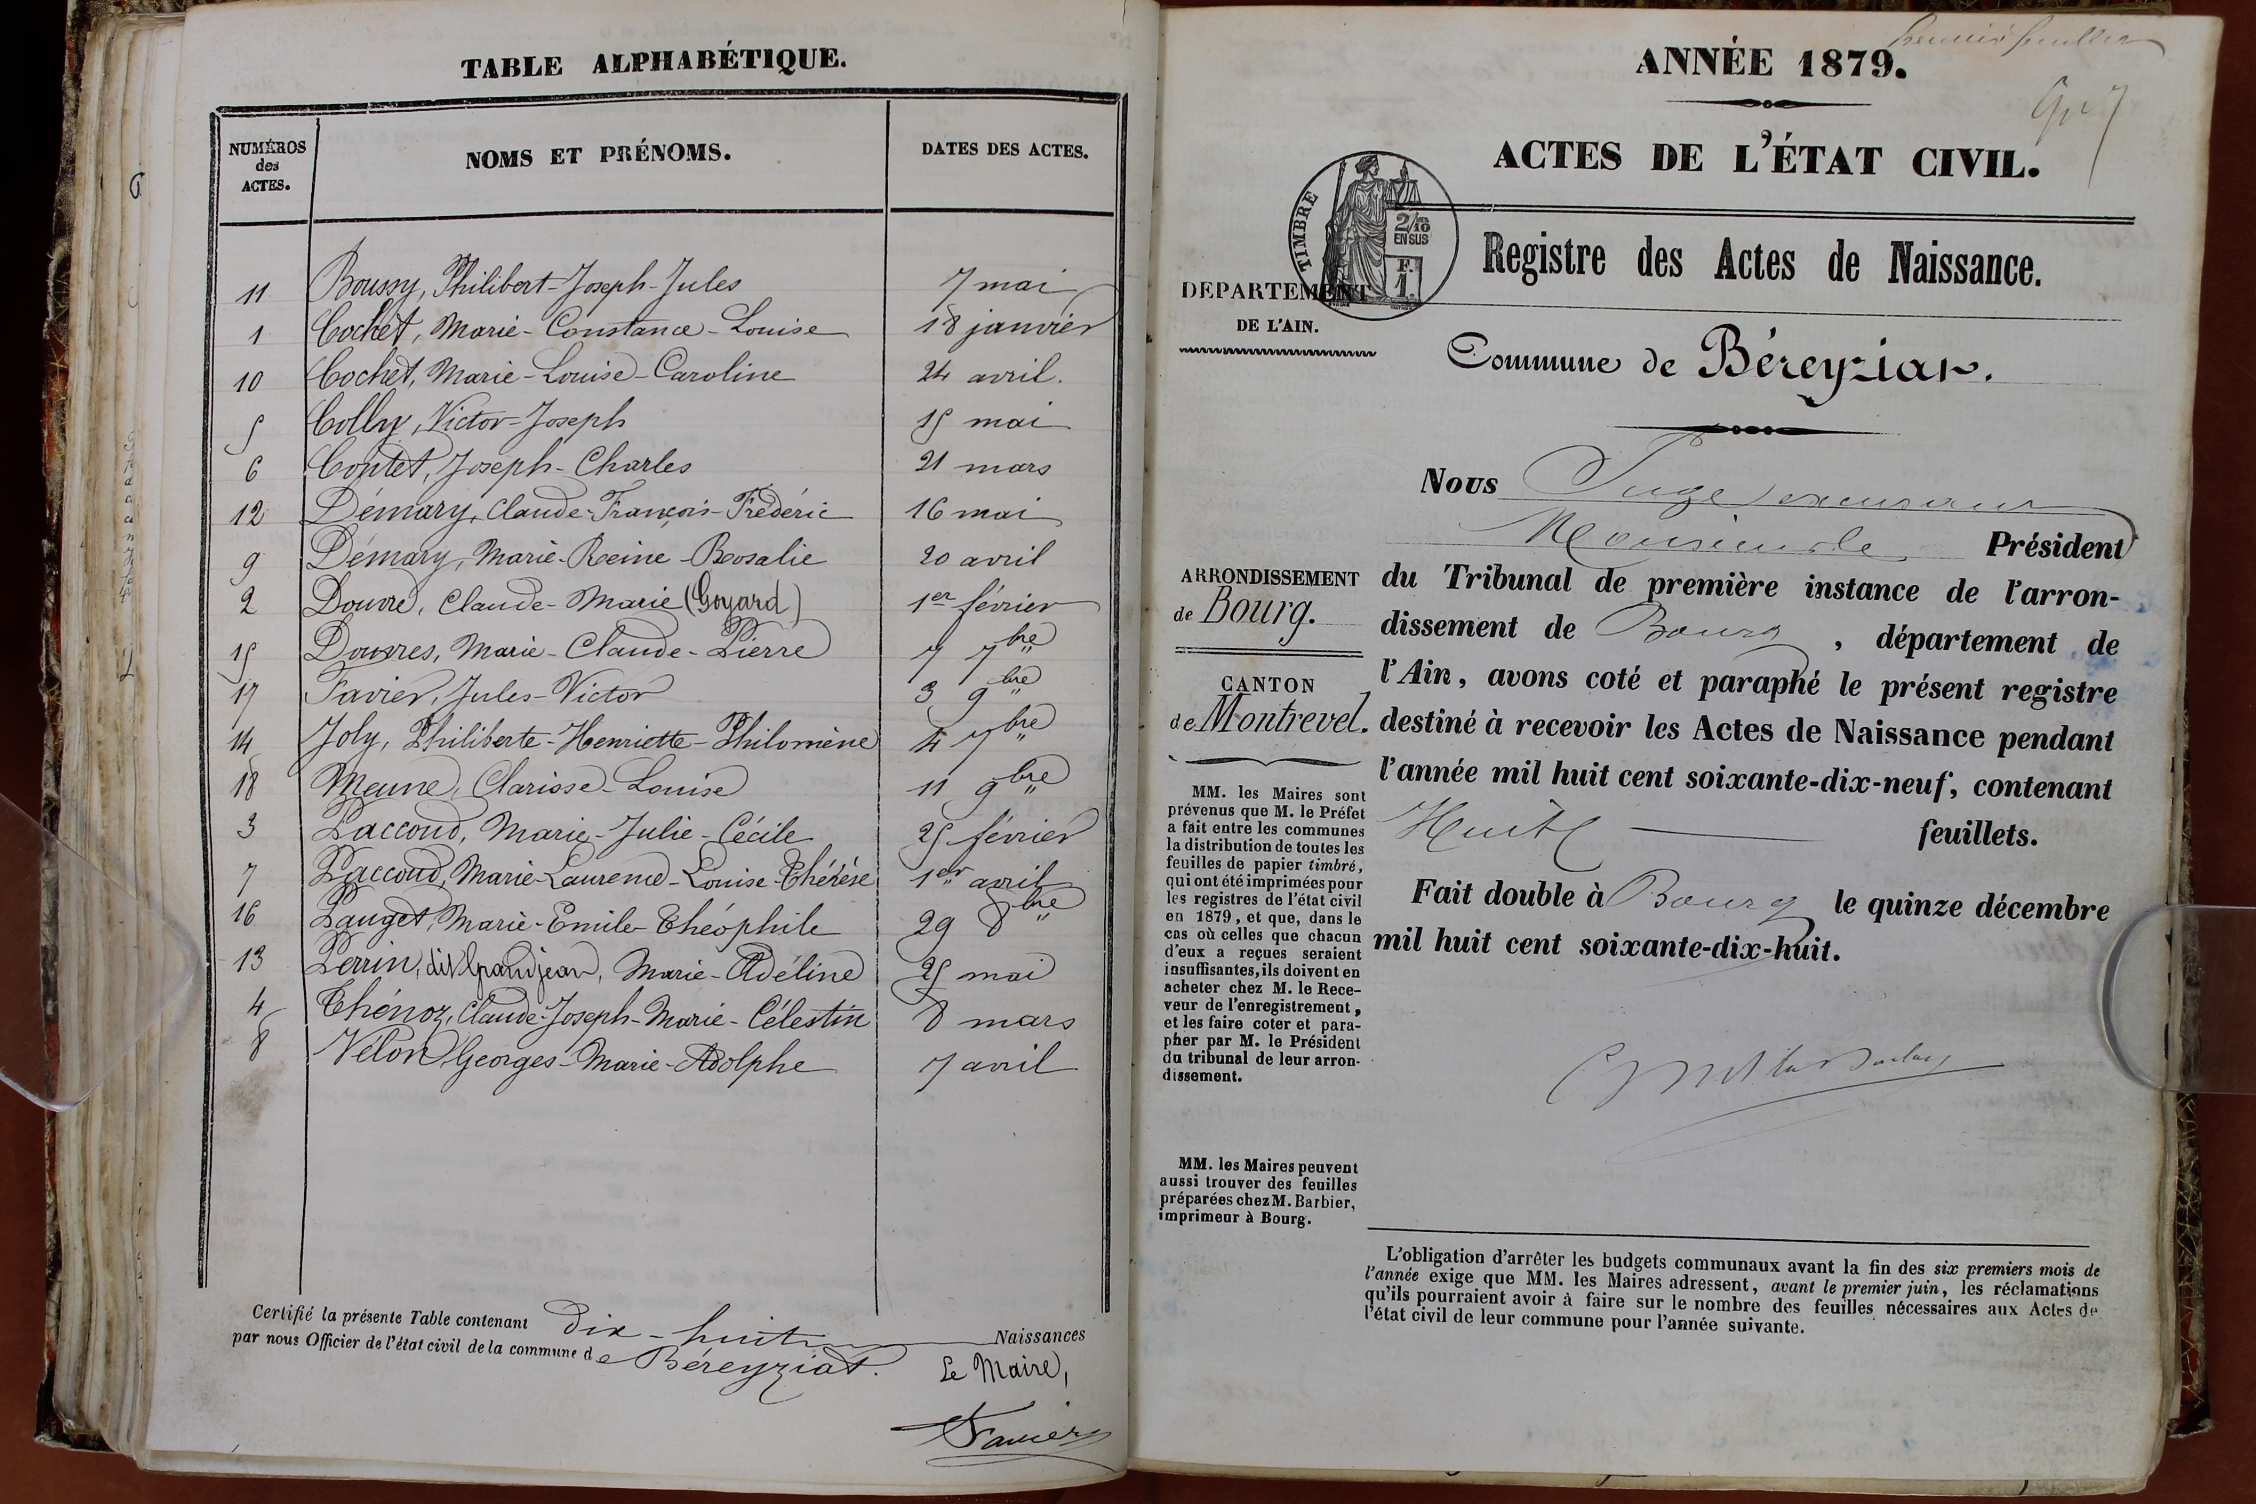 TABLE ALPHABÉTIQUE.
NUMÉROS des ACTES. NOMS ET PRÉNOMS. DATES DES ACTES.
11 Boussy, Philibert-Joseph-Jules 7 mai
1 Cochet, Marie-Constance-Louise 18 janvier
10 Cochet, Marie-Louise-Caroline 24 avril.
5 Colly, Victor-Joseph 15 mai
6 Contet, Joseph-Charles 21 mars
12 Démary, Claude-François-Frédéric 16 mai
9 Démary, Marie-Reine-Rosalie 20 avril
2 Douvre, Claude-Marie (Goyard) 1er février
15 Douvres, Marie-Claude-Pierre 7 7bre
17 Favier, Jules-Victor 3 9bre
14 Joly, Philiberte-Henriette-Philomène 4 7bre
18 Meune, Clarisse-Louise 11 9bre
3 Paccoud, Marie-Julie-Cécile 25 février
7 Paccoud, Marie-Laurence-Louise-Thérèse 1er avril
16 Pauget, Marie-Emile-Théophile 29 8bre
13 Perrin, dit Grandjean, Marie-Adéline 25 mai
4 Thénoz, Claude-Joseph-Marie-Célestin 8 mars
8 Vélon, Georges-Marie-Adolphe 7 avril
Certifié la présente Table contenant Dix-huit Naissances
par nous Officier de l'état civil de la commune de Béreyziat.
Le Maire,
Favier
ANNÉE 1879.
ACTES DE L'ÉTAT CIVIL.
TIMBRE
2/10
EN SUS
F.
1.
Registre des Actes de Naissance.
DEPARTEMENT
DE L'AIN.
Commune de Béreyziat.
Nous Juge
Monsieur le Président
ARRONDISSEMENT
de Bourg.
CANTON
de Montrevel.
du Tribunal de première instance de l'arron-
dissement de Bourg, département de
l'Ain, avons coté et paraphé le présent registre
destiné à recevoir les Actes de Naissance pendant
l'année mil huit cent soixante-dix-neuf, contenant
Huit feuillets.
Fait double à Bourg le quinze décembre
mil huit cent soixante-dix-huit.
MM. les Maires sont
prévenus que M. le Préfet
a fait entre les communes
la distribution de toutes les
feuilles de papier timbré,
qui ont été imprimées pour
les registres de l'état civil
en 1879, et que, dans le
cas où celles que chacun
d'eux a reçues seraient
insuffisantes, ils doivent en
acheter chez M. le Rece-
veur de l'enregistrement,
et les faire coter et para-
pher par M. le Président
du tribunal de leur arron-
dissement.
MM. les Maires peuvent
aussi trouver des feuilles
préparées chez M. Barbier,
imprimeur à Bourg.
L'obligation d'arrêter les budgets communaux avant la fin des six premiers mois de
l'année exige que MM. les Maires adressent, avant le premier juin, les réclamations
qu'ils pourraient avoir à faire sur le nombre des feuilles nécessaires aux Actes de
l'état civil de leur commune pour l'année suivante.